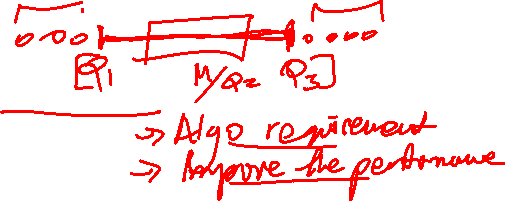 [Q1 M/Q2 Q3]
→ Algo requirement
→ Improve the performance